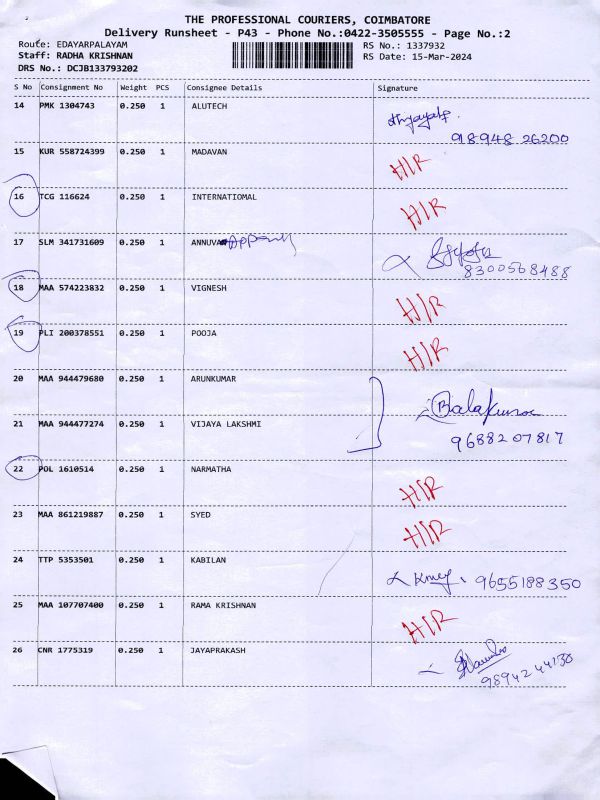 THE PROFESSIONAL COURIERS, COIMBATORE
Delivery Runsheet - P43 - Phone No.:0422-3505555 - Page No.:2
Route: EDAYARPALAYAM RS No.: 1337932
Staff: RADHA KRISHNAN RS Date: 15-Mar-2024
DRS No.: DCJB133793202
S No Consignment No Weight PCS Consignee Details Signature
14 PMK 1304743 0.250 1 ALUTECH
98948 26200
15 KUR 558724399 0.250 1 MADAVAN H/R
16 TCG 116624 0.250 1 INTERNATIOMAL H/R
17 SLM 341731609 0.250 1
8300568488
18 MAA 574223832 0.250 1 VIGNESH H/R
19 PLI 200378551 0.250 1 POOJA H/R
20 MAA 944479680 0.250 1 ARUNKUMAR Balakumar
21 MAA 944477274 0.250 1 VIJAYA LAKSHMI 9688207817
22 POL 1610514 0.250 1 NARMATHA H/R
23 MAA 861219887 0.250 1 SYED H/R
24 TTP 5353501 0.250 1 KABILAN 9655188350
25 MAA 107707400 0.250 1 RAMA KRISHNAN H/R
26 CNR 1775319 0.250 1 JAYAPRAKASH
98942 44130